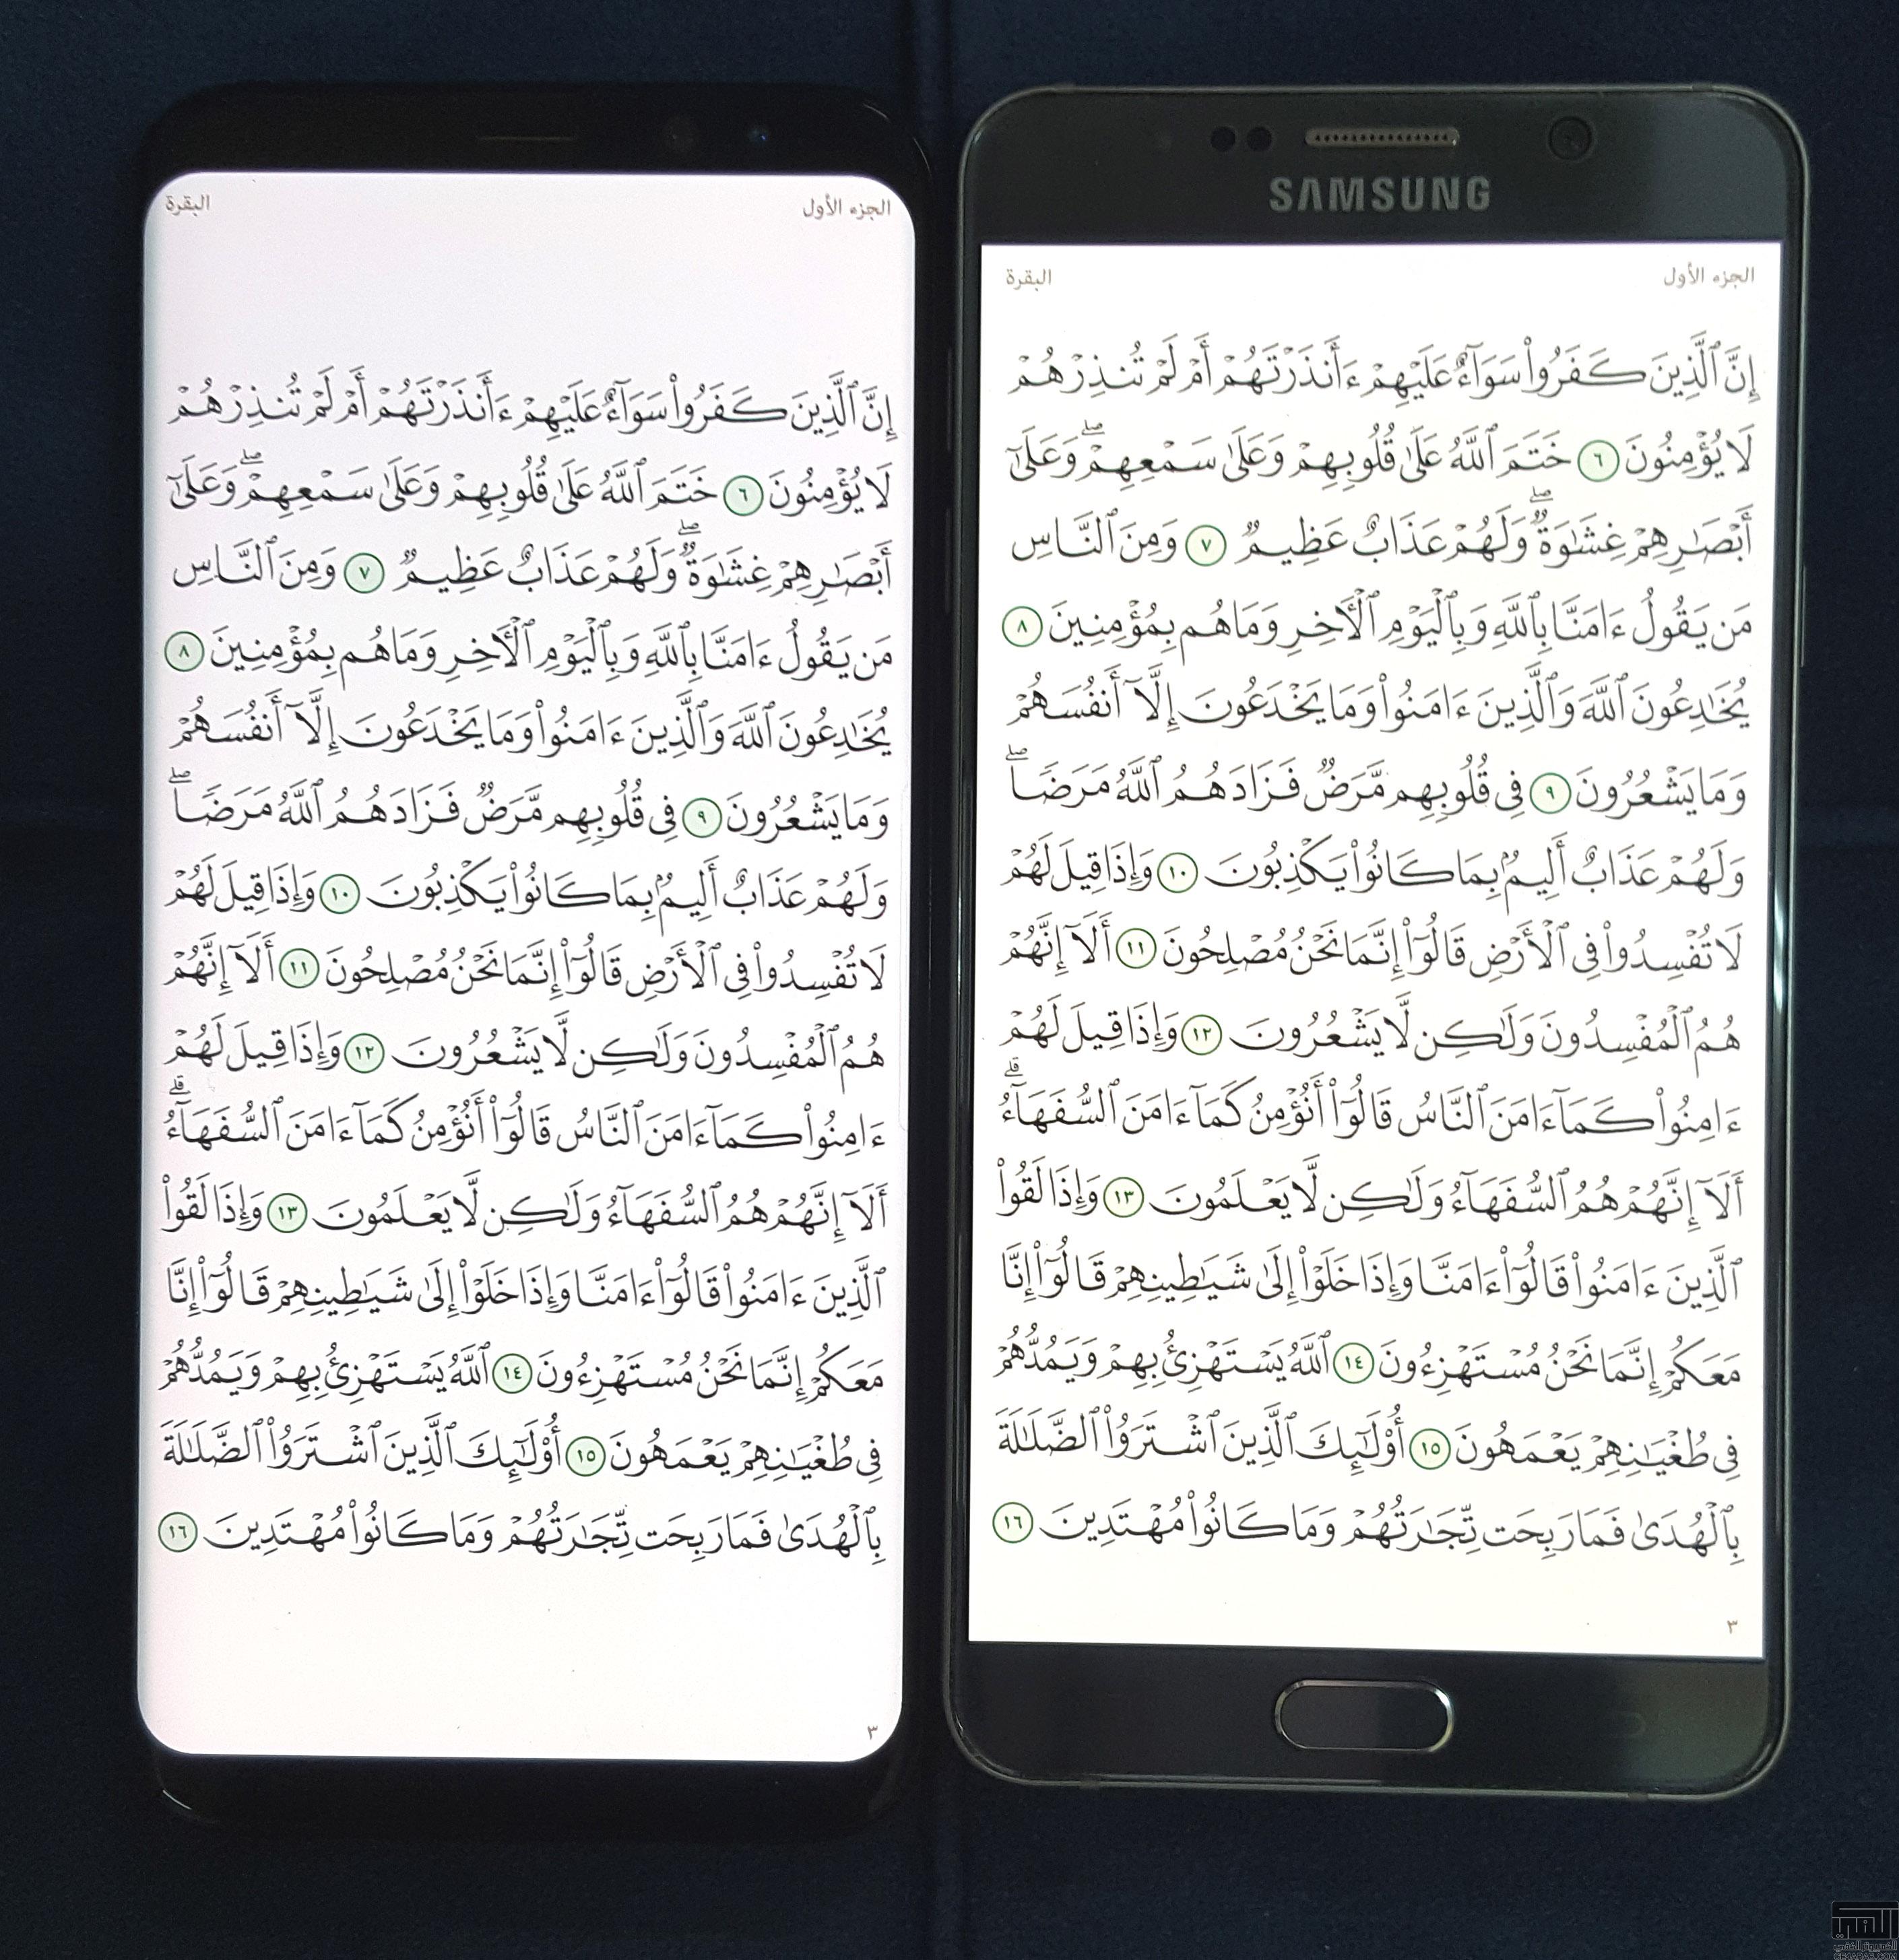 الجزء الأول
البقرة
إِنَّ ٱلَّذِينَ كَفَرُوا۟ سَوَآءٌ عَلَيْهِمْ ءَأَنذَرْتَهُمْ أَمْ لَمْ تُنذِرْهُمْ
لَا يُؤْمِنُونَ ٦ خَتَمَ ٱللَّهُ عَلَىٰ قُلُوبِهِمْ وَعَلَىٰ سَمْعِهِمْ ۖ وَعَلَىٰٓ
أَبْصَـٰرِهِمْ غِشَـٰوَةٌ ۖ وَلَهُمْ عَذَابٌ عَظِيمٌ ٧ وَمِنَ ٱلنَّاسِ
مَن يَقُولُ ءَامَنَّا بِٱللَّهِ وَبِٱلْيَوْمِ ٱلْـَٔاخِرِ وَمَا هُم بِمُؤْمِنِينَ ٨
يُخَـٰدِعُونَ ٱللَّهَ وَٱلَّذِينَ ءَامَنُوا۟ وَمَا يَخْدَعُونَ إِلَّآ أَنفُسَهُمْ
وَمَا يَشْعُرُونَ ٩ فِى قُلُوبِهِم مَّرَضٌ فَزَادَهُمُ ٱللَّهُ مَرَضًا ۖ
وَلَهُمْ عَذَابٌ أَلِيمٌۢ بِمَا كَانُوا۟ يَكْذِبُونَ ١٠ وَإِذَا قِيلَ لَهُمْ
لَا تُفْسِدُوا۟ فِى ٱلْأَرْضِ قَالُوٓا۟ إِنَّمَا نَحْنُ مُصْلِحُونَ ١١ أَلَآ إِنَّهُمْ
هُمُ ٱلْمُفْسِدُونَ وَلَـٰكِن لَّا يَشْعُرُونَ ١٢ وَإِذَا قِيلَ لَهُمْ
ءَامِنُوا۟ كَمَآ ءَامَنَ ٱلنَّاسُ قَالُوٓا۟ أَنُؤْمِنُ كَمَآ ءَامَنَ ٱلسُّفَهَآءُ ۗ
أَلَآ إِنَّهُمْ هُمُ ٱلسُّفَهَآءُ وَلَـٰكِن لَّا يَعْلَمُونَ ١٣ وَإِذَا لَقُوا۟
ٱلَّذِينَ ءَامَنُوا۟ قَالُوٓا۟ ءَامَنَّا وَإِذَا خَلَوْا۟ إِلَىٰ شَيَـٰطِينِهِمْ قَالُوٓا۟ إِنَّا
مَعَكُمْ إِنَّمَا نَحْنُ مُسْتَهْزِءُونَ ١٤ ٱللَّهُ يَسْتَهْزِئُ بِهِمْ وَيَمُدُّهُمْ
فِى طُغْيَـٰنِهِمْ يَعْمَهُونَ ١٥ أُو۟لَـٰٓئِكَ ٱلَّذِينَ ٱشْتَرَوُا۟ ٱلضَّلَـٰلَةَ
بِٱلْهُدَىٰ فَمَا رَبِحَت تِّجَـٰرَتُهُمْ وَمَا كَانُوا۟ مُهْتَدِينَ ١٦
٣
SAMSUNG
الجزء الأول
البقرة
إِنَّ ٱلَّذِينَ كَفَرُوا۟ سَوَآءٌ عَلَيْهِمْ ءَأَنذَرْتَهُمْ أَمْ لَمْ تُنذِرْهُمْ
لَا يُؤْمِنُونَ ٦ خَتَمَ ٱللَّهُ عَلَىٰ قُلُوبِهِمْ وَعَلَىٰ سَمْعِهِمْ ۖ وَعَلَىٰٓ
أَبْصَـٰرِهِمْ غِشَـٰوَةٌ ۖ وَلَهُمْ عَذَابٌ عَظِيمٌ ٧ وَمِنَ ٱلنَّاسِ
مَن يَقُولُ ءَامَنَّا بِٱللَّهِ وَبِٱلْيَوْمِ ٱلْـَٔاخِرِ وَمَا هُم بِمُؤْمِنِينَ ٨
يُخَـٰدِعُونَ ٱللَّهَ وَٱلَّذِينَ ءَامَنُوا۟ وَمَا يَخْدَعُونَ إِلَّآ أَنفُسَهُمْ
وَمَا يَشْعُرُونَ ٩ فِى قُلُوبِهِم مَّرَضٌ فَزَادَهُمُ ٱللَّهُ مَرَضًا ۖ
وَلَهُمْ عَذَابٌ أَلِيمٌۢ بِمَا كَانُوا۟ يَكْذِبُونَ ١٠ وَإِذَا قِيلَ لَهُمْ
لَا تُفْسِدُوا۟ فِى ٱلْأَرْضِ قَالُوٓا۟ إِنَّمَا نَحْنُ مُصْلِحُونَ ١١ أَلَآ إِنَّهُمْ
هُمُ ٱلْمُفْسِدُونَ وَلَـٰكِن لَّا يَشْعُرُونَ ١٢ وَإِذَا قِيلَ لَهُمْ
ءَامِنُوا۟ كَمَآ ءَامَنَ ٱلنَّاسُ قَالُوٓا۟ أَنُؤْمِنُ كَمَآ ءَامَنَ ٱلسُّفَهَآءُ ۗ
أَلَآ إِنَّهُمْ هُمُ ٱلسُّفَهَآءُ وَلَـٰكِن لَّا يَعْلَمُونَ ١٣ وَإِذَا لَقُوا۟
ٱلَّذِينَ ءَامَنُوا۟ قَالُوٓا۟ ءَامَنَّا وَإِذَا خَلَوْا۟ إِلَىٰ شَيَـٰطِينِهِمْ قَالُوٓا۟ إِنَّا
مَعَكُمْ إِنَّمَا نَحْنُ مُسْتَهْزِءُونَ ١٤ ٱللَّهُ يَسْتَهْزِئُ بِهِمْ وَيَمُدُّهُمْ
فِى طُغْيَـٰنِهِمْ يَعْمَهُونَ ١٥ أُو۟لَـٰٓئِكَ ٱلَّذِينَ ٱشْتَرَوُا۟ ٱلضَّلَـٰلَةَ
بِٱلْهُدَىٰ فَمَا رَبِحَت تِّجَـٰرَتُهُمْ وَمَا كَانُوا۟ مُهْتَدِينَ ١٦
٣